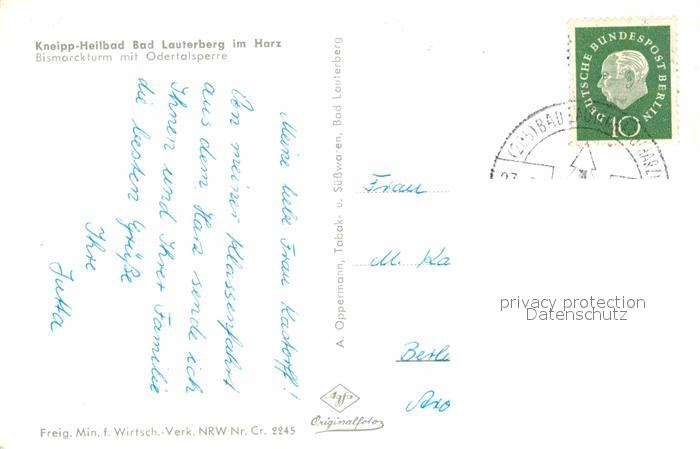 Kneipp-Heilbad Bad Lauterberg im Harz
Bismarckturm mit Odertalsperre
Meine liebe Frau Kastorff!
Von meiner Klassenfahrt
aus dem Harz sende ich
Ihnen und Ihrer Familie
die besten Grüße
Ihre
Jutta
Freig. Min. f. Wirtsch.-Verk. NRW Nr. Cr. 2245
A. Oppermann, Tabak- u. Süßwaren, Bad Lauterberg
Agfa
Originalfoto
DEUTSCHE BUNDESPOST BERLIN
10
BAD
Frau
M. Ka
Berli
privacy protection
Datenschutz